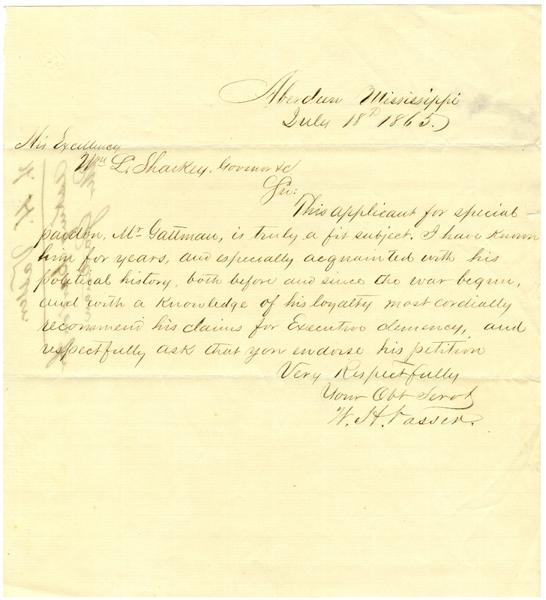 Aberdeen Mississippi
July 18th 1865.
His Excellency
Wm L. Sharkey. Governor &c
Sir:
This applicant for special
pardon, Mr. Gattman, is truly a fit subject. I have known
him for years, and especially acquainted with his
political history, both before and since the war begun,
and with a knowledge of his loyalty most cordially
recommend his claims for Executive clemency, and
respectfully ask that you endorse his petition
Very Respectfully
Your Obt Servt
W. H. Vasser.